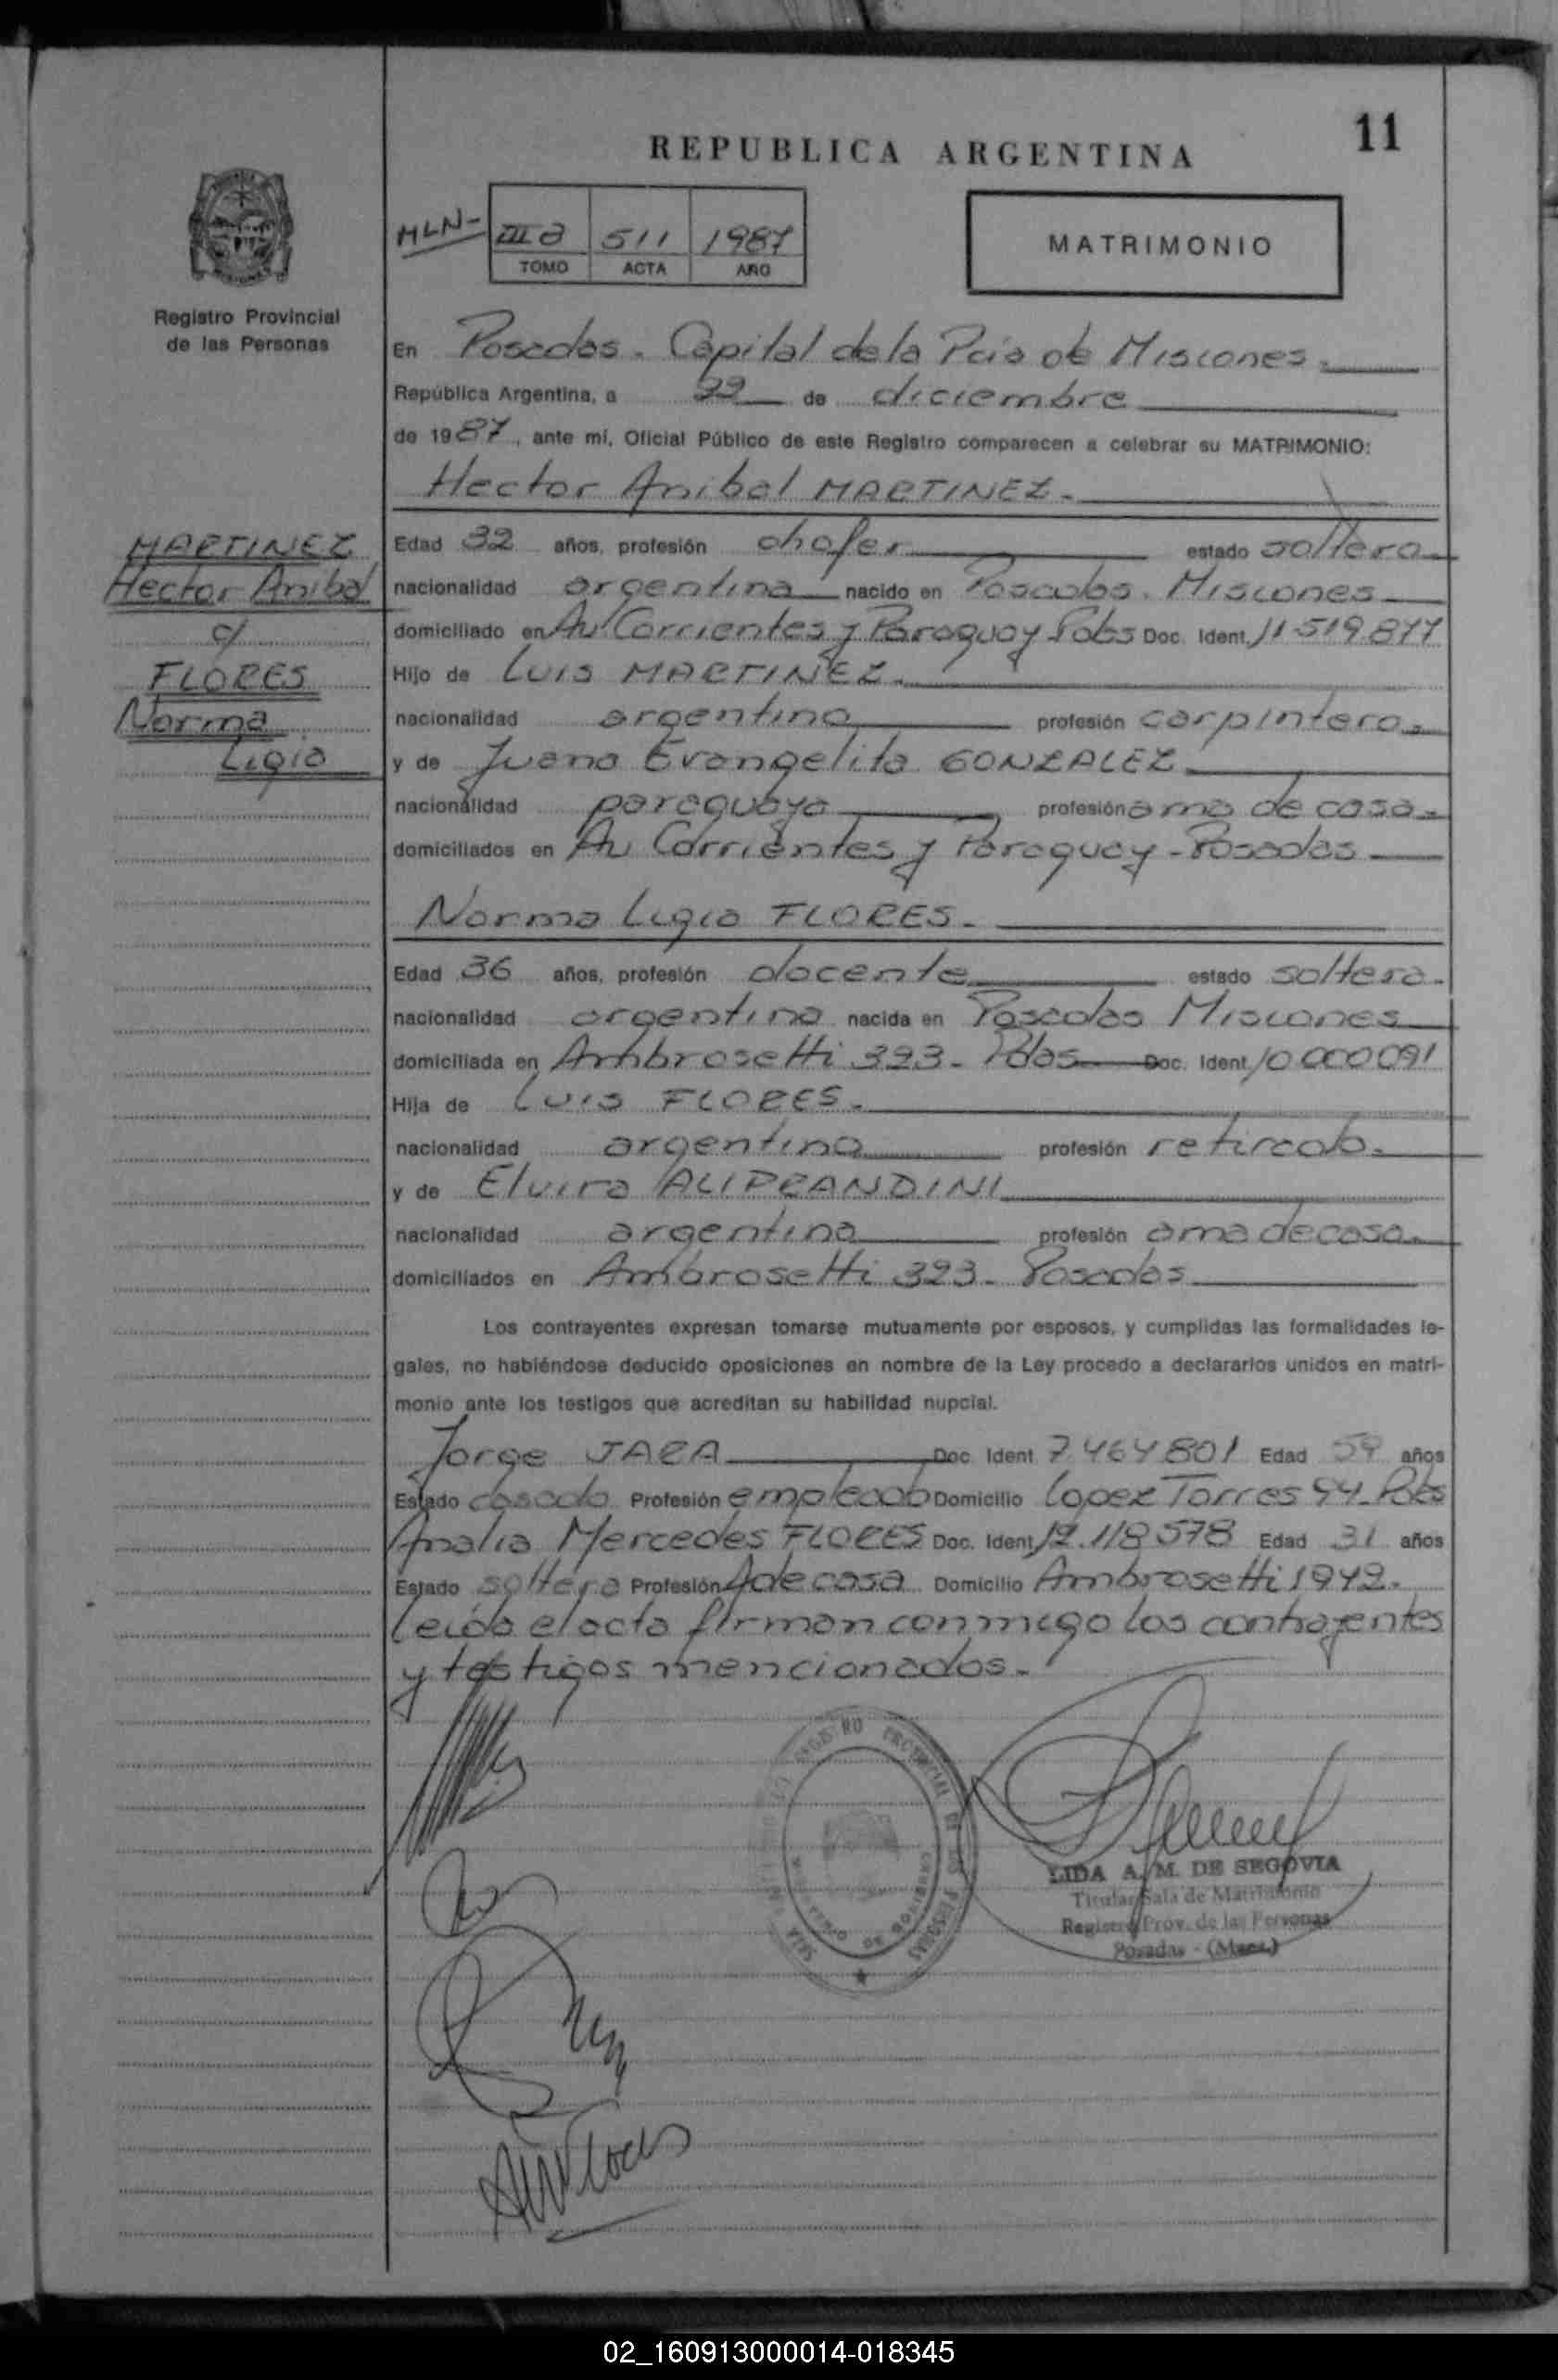 11
REPUBLICA ARGENTINA
MLN- III a 511 1987
TOMO ACTA AÑO
MATRIMONIO
Registro Provincial
de las Personas
En Posadas. Capital de la Pcia de Misiones.
República Argentina, a 22 de diciembre
de 1987, ante mí, Oficial Público de este Registro comparecen a celebrar su MATRIMONIO:
Hector Anibal MARTINEZ.
MARTINEZ
Hector Anibal
c/
FLORES
Norma
Ligia
Edad 32 años, profesión chofer estado soltero
nacionalidad argentina nacido en Posadas. Misiones
domiciliado en Av Corrientes y Paraguay Pdas Doc. Ident. 11.519.877
Hijo de Luis MARTINEZ.
nacionalidad argentina profesión carpintero.
y de Juana Evangelita GONZALEZ
nacionalidad paraguaya profesión ama de casa.
domiciliados en Av Corrientes y Paraguay - Posadas
Norma Ligia FLORES.
Edad 36 años, profesión docente estado soltera.
nacionalidad argentina nacida en Posadas Misiones
domiciliada en Ambrosetti 323. Pdas Doc. Ident. 10000091
Hija de Luis FLORES.
nacionalidad argentina profesión retirado.
y de Elvira ALIPRANDINI
nacionalidad argentina profesión ama de casa.
domiciliados en Ambrosetti 323. Posadas
Los contrayentes expresan tomarse mutuamente por esposos, y cumplidas las formalidades le-
gales, no habiéndose deducido oposiciones en nombre de la Ley procedo a declararlos unidos en matri-
monio ante los testigos que acreditan su habilidad nupcial.
Jorge JARA Doc. Ident 7.464.801 Edad 59 años
Estado casado Profesión empleado Domicilio Lopez Torres 94. Pdas
Analia Mercedes FLORES Doc. Ident. 12.118.578 Edad 31 años
Estado soltera Profesión A de casa Domicilio Ambrosetti 1942.
leida el acta firman conmigo los contrayentes
y testigos mencionados.
LIDA A. M. DE SEGOVIA
Titular Sala de Matrimonio
Registro Prov. de las Personas
Posadas - (Mnes.)
02_160913000014-018345